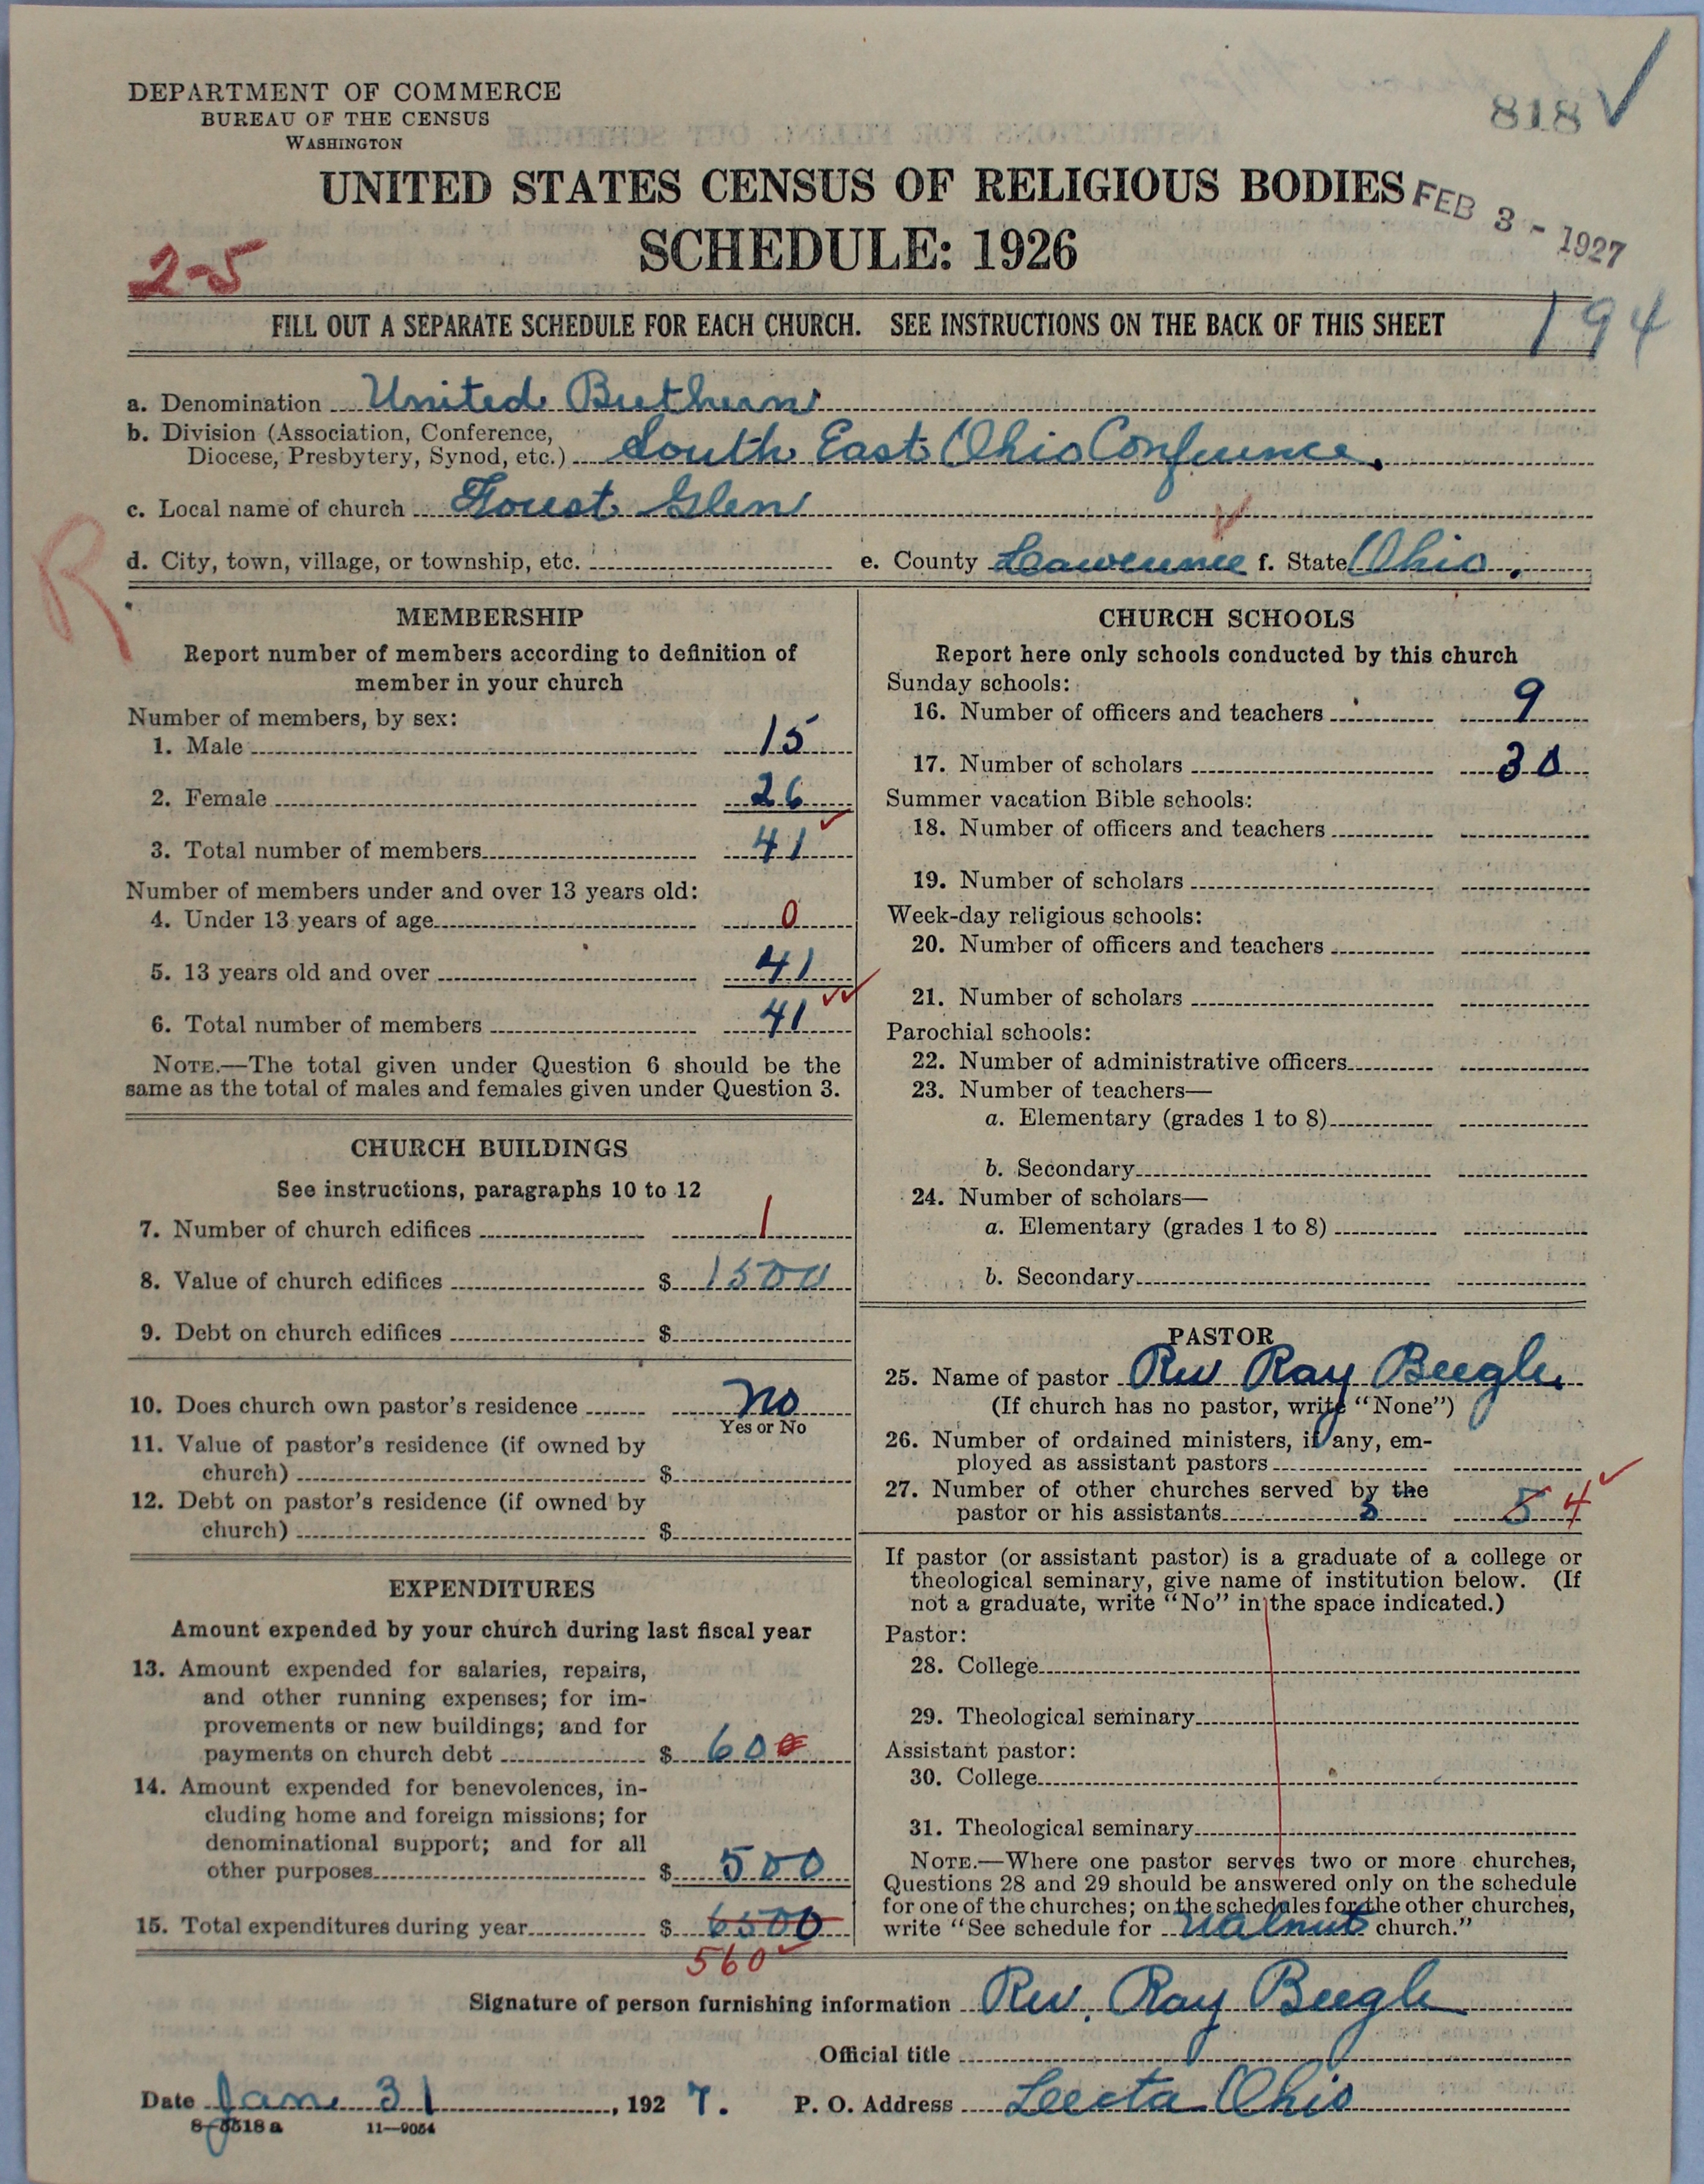 DEPARTMENT OF COMMERCE
BUREAU OF THE CENSUS
WASHINGTON
818 ✓
UNITED STATES CENSUS OF RELIGIOUS BODIES
SCHEDULE: 1926
FEB 3 - 1927
2-5
FILL OUT A SEPARATE SCHEDULE FOR EACH CHURCH. SEE INSTRUCTIONS ON THE BACK OF THIS SHEET
194
a. Denomination United Brethren
b. Division (Association, Conference,
Diocese, Presbytery, Synod, etc.) South East Ohio Conference.
c. Local name of church Forest Glen
R
d. City, town, village, or township, etc.
e. County Lawrence f. State Ohio.
MEMBERSHIP
Report number of members according to definition of
member in your church
Number of members, by sex:
1. Male 15
2. Female 26
3. Total number of members 41 ✓
Number of members under and over 13 years old:
4. Under 13 years of age 0
5. 13 years old and over 41
6. Total number of members 41 ✓✓
NOTE.—The total given under Question 6 should be the
same as the total of males and females given under Question 3.
CHURCH BUILDINGS
See instructions, paragraphs 10 to 12
7. Number of church edifices 1
8. Value of church edifices $ 1500
9. Debt on church edifices $
10. Does church own pastor's residence no
Yes or No
11. Value of pastor's residence (if owned by
church) $
12. Debt on pastor's residence (if owned by
church) $
EXPENDITURES
Amount expended by your church during last fiscal year
13. Amount expended for salaries, repairs,
and other running expenses; for im-
provements or new buildings; and for
payments on church debt $ 600
14. Amount expended for benevolences, in-
cluding home and foreign missions; for
denominational support; and for all
other purposes $ 500
15. Total expenditures during year $ 6500
560 ✓
CHURCH SCHOOLS
Report here only schools conducted by this church
Sunday schools:
16. Number of officers and teachers 9
17. Number of scholars 30
Summer vacation Bible schools:
18. Number of officers and teachers
19. Number of scholars
Week-day religious schools:
20. Number of officers and teachers
21. Number of scholars
Parochial schools:
22. Number of administrative officers
23. Number of teachers—
a. Elementary (grades 1 to 8)
b. Secondary
24. Number of scholars—
a. Elementary (grades 1 to 8)
b. Secondary
PASTOR
25. Name of pastor Rev Ray Beegle
(If church has no pastor, write "None")
26. Number of ordained ministers, if any, em-
ployed as assistant pastors
27. Number of other churches served by the
pastor or his assistants 5 4 ✓
If pastor (or assistant pastor) is a graduate of a college or
theological seminary, give name of institution below. (If
not a graduate, write "No" in the space indicated.)
Pastor:
28. College
29. Theological seminary
Assistant pastor:
30. College
31. Theological seminary
NOTE.—Where one pastor serves two or more churches,
Questions 28 and 29 should be answered only on the schedule
for one of the churches; on the schedules for the other churches,
write "See schedule for Walnut church."
Signature of person furnishing information Rev. Ray Beegle
Official title
Date Jan 31, 1927. P. O. Address Leecta Ohio
8-5518a 11—9054